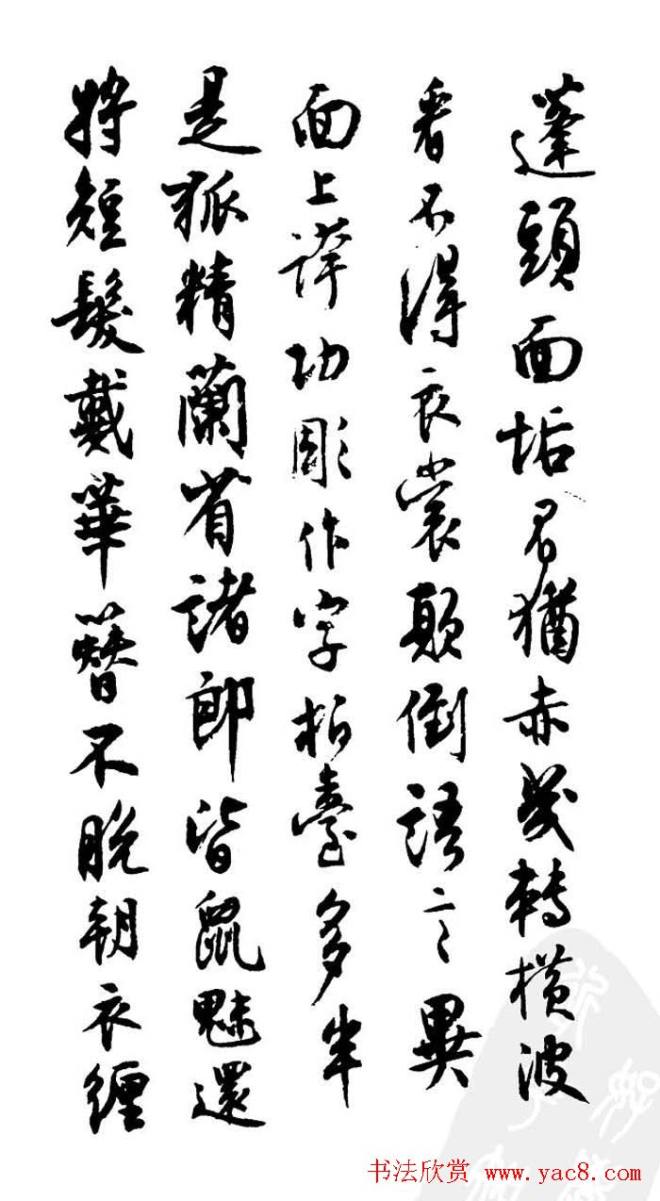 蓬頭面垢君猶赤幾轉橫波
看不得衣裳顛倒語言異
面上誇功彫作字柏臺多半
是狐精蘭省諸郎皆鼠魅還
將短髮戴華簪不脫朝衣纏
书法欣赏 www.yac8.com